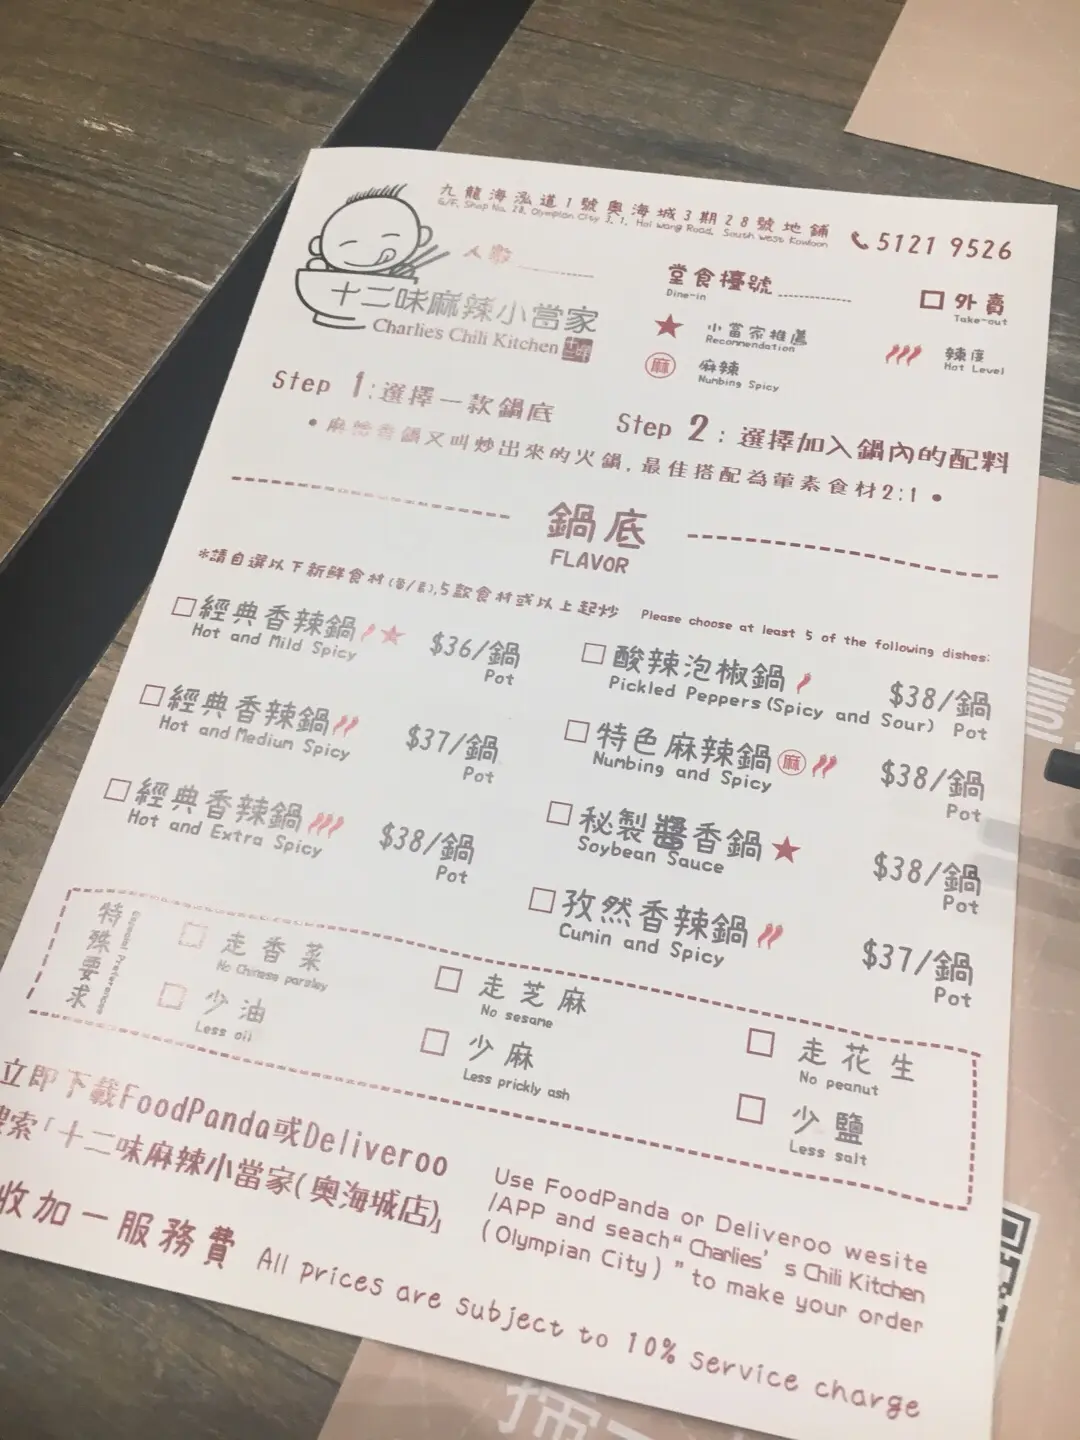 九龍海泓道1號奧海城3期28號地鋪
G/F, Shop No. 28, Olympian City 3, 1, Hoi Wang Road, South West Kowloon
5121 9526
人數
堂食檯號
Dine-in
外賣
Take-out
十二味麻辣小當家
Charlie's Chili Kitchen
小當家推薦
Recommendation
辣度
Hot Level
麻
麻辣
Numbing Spicy
Step 1:選擇一款鍋底
Step 2:選擇加入鍋內的配料
• 麻辣香鍋又叫炒出來的火鍋,最佳搭配為葷素食材2:1 •
鍋底
FLAVOR
*請自選以下新鮮食材(葷/素),5款食材或以上起炒 Please choose at least 5 of the following dishes:
經典香辣鍋 $36/鍋
Hot and Mild Spicy Pot
經典香辣鍋 $37/鍋
Hot and Medium Spicy Pot
經典香辣鍋 $38/鍋
Hot and Extra Spicy Pot
酸辣泡椒鍋 $38/鍋
Pickled Peppers (Spicy and Sour) Pot
特色麻辣鍋 麻 $38/鍋
Numbing and Spicy Pot
秘製醬香鍋 $38/鍋
Soybean Sauce Pot
孜然香辣鍋 $37/鍋
Cumin and Spicy Pot
特殊要求
走香菜
No Chinese parsley
走芝麻
No sesame
走花生
No peanut
少油
Less oil
少麻
Less prickly ash
少鹽
Less salt
立即下載FoodPanda或Deliveroo
搜索「十二味麻辣小當家(奧海城店)」
Use FoodPanda or Deliveroo wesite
/APP and seach“Charlies’s Chili Kitchen
(Olympian City)”to make your order
收加一服務費 All prices are subject to 10% service charge